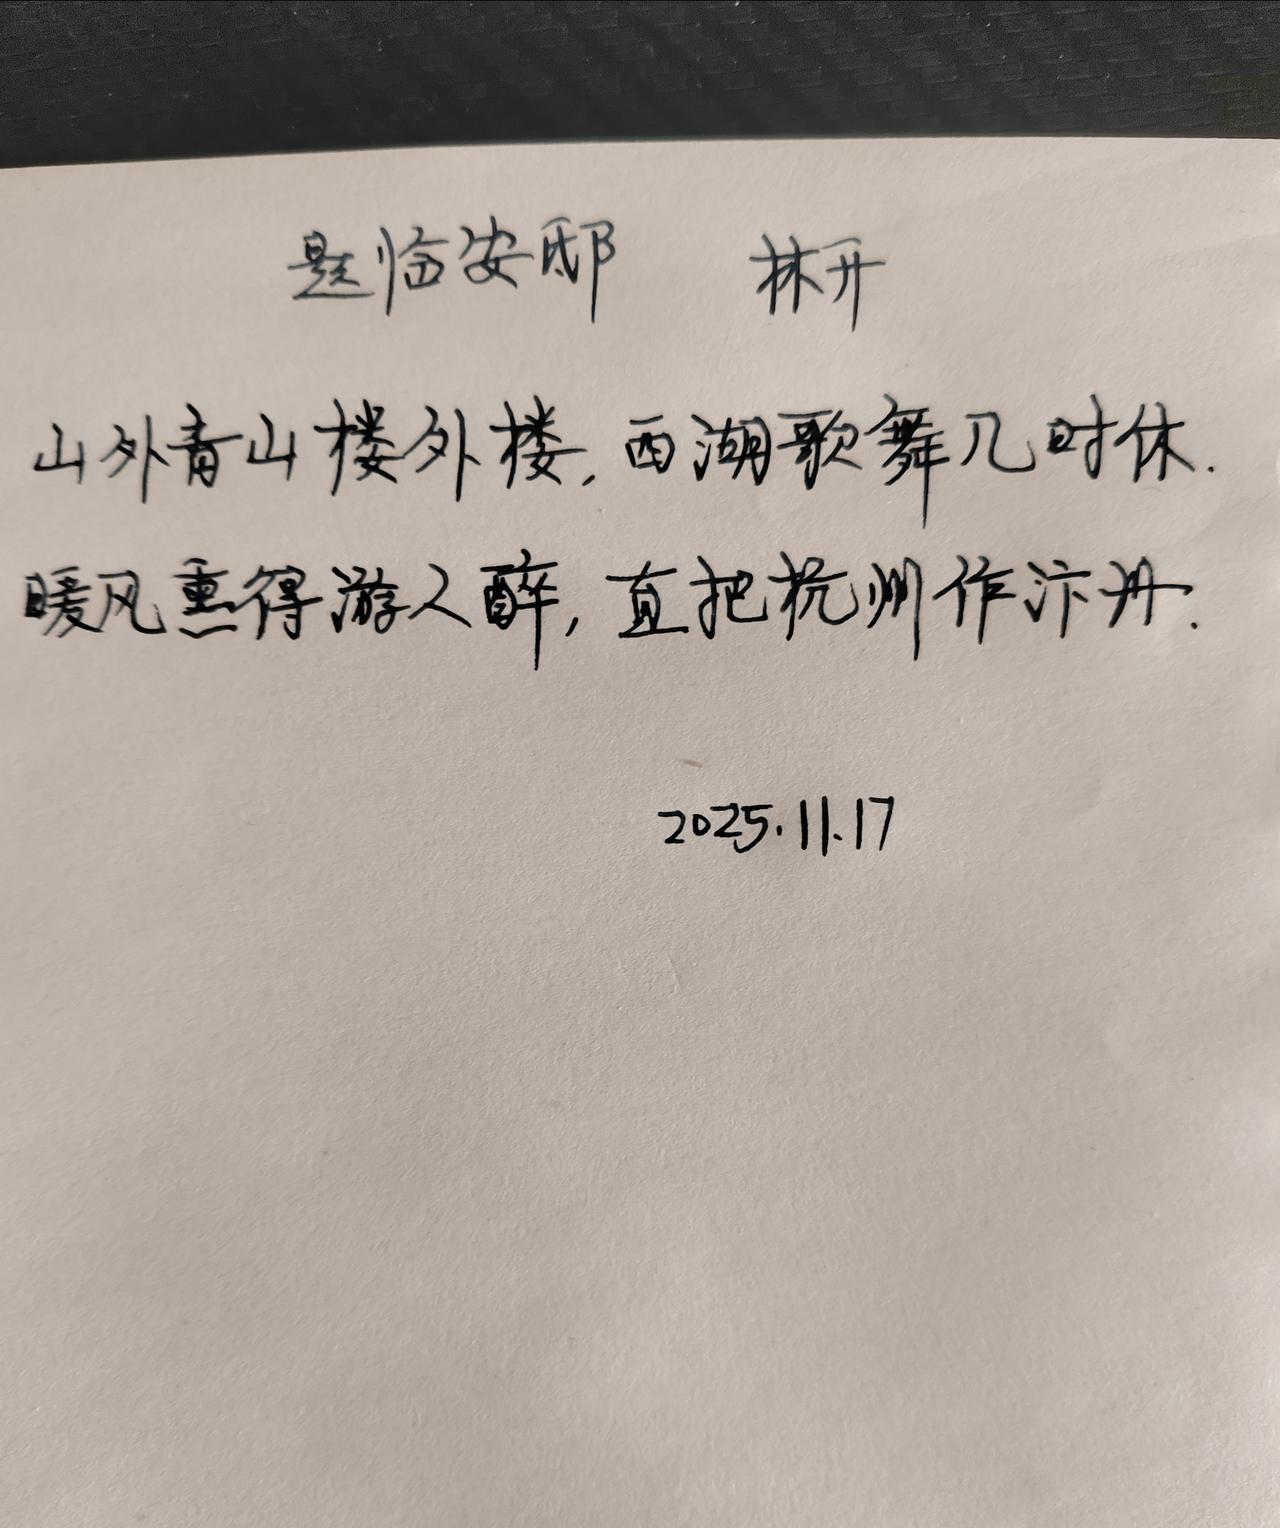 题临安邸 林升
山外青山楼外楼,西湖歌舞几时休.
暖风熏得游人醉,直把杭州作汴州.
2025.11.17